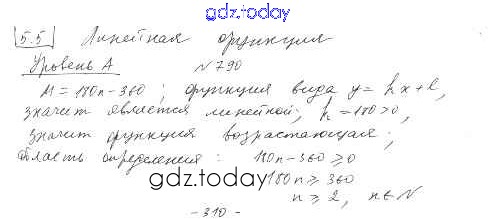 gdz.today
5.5 Линейная функция
Уровень А №790
M = 180n - 360 ; функция вида y = kx + l,
значит является линейной; k = 180 > 0,
значит функция возрастающая;
область определения : 180n - 360 ≥ 0
gdz.today 180n ≥ 360
n ≥ 2, n ∈ N
- 310 -